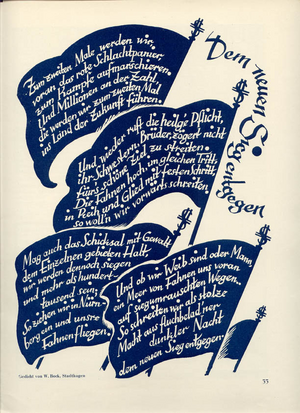 Dem neuen Sieg entgegen
Zum zweiten Male werden wir,
voran das rote Schlachtpanier,
zum Kampfe aufmarschieren.
Und Millionen an der Zahl,
die werden wir zum zweiten Mal
ins Land der Zukunft führen.
Und wieder ruft die heilige Pflicht,
ihr Schwestern, Brüder, zögert nicht
fürs schöne Ziel zu streiten.
Die Fahnen hoch, im gleichen Tritt,
in Reih und Glied mit festem Schritt,
so woll'n wir vorwärts schreiten.
Mag auch das Schicksal mit Gewalt
dem Einzelnen gebieten Halt,
wir werden dennoch siegen
und mehr als hundert-
tausend sein;
So ziehen wir in Nürn-
berg ein und unsre
Fahnen fliegen.
Und ob wir Weib sind oder Mann
ein Meer von Fahnen uns voran
auf siegumrauschten Wegen.
So schreiten wir als stolze
Macht aus fluchbelad'ner
dunkler Nacht
dem neuen Sieg entgegen.
Gedicht von W. Bock, Stadthagen
55